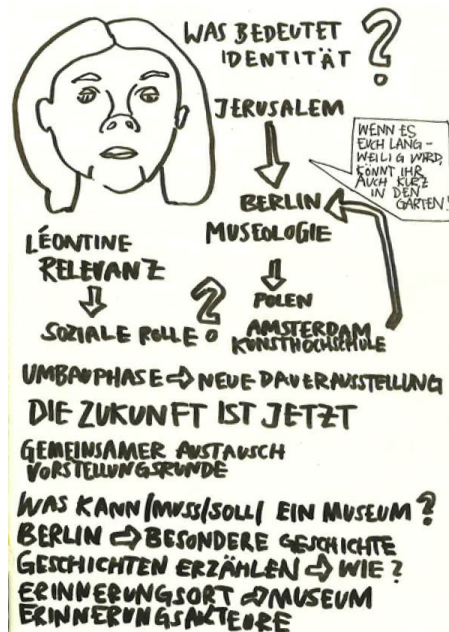 WAS BEDEUTET
IDENTITÄT ?
JERUSALEM
WENN ES
EUCH LANG-
WEILIG WIRD,
KÖNNT IHR
AUCH KURZ
IN DEN
GARTEN!
BERLIN
MUSEOLOGIE
LÉONTINE
RELEVANZ
SOZIALE ROLLE ?
POLEN
AMSTERDAM
KUNSTHOCHSCHULE
UMBAUPHASE ⇨ NEUE DAUERAUSSTELLUNG
DIE ZUKUNFT IST JETZT
GEMEINSAMER AUSTAUSCH
VORSTELLUNGSRUNDE
WAS KANN/MUSS/SOLL/ EIN MUSEUM ?
BERLIN ⇨ BESONDERE GESCHICHTE
GESCHICHTEN ERZÄHLEN ⇨ WIE ?
ERINNERUNGSORT ⇨ MUSEUM
ERINNERUNGSAKTEURE